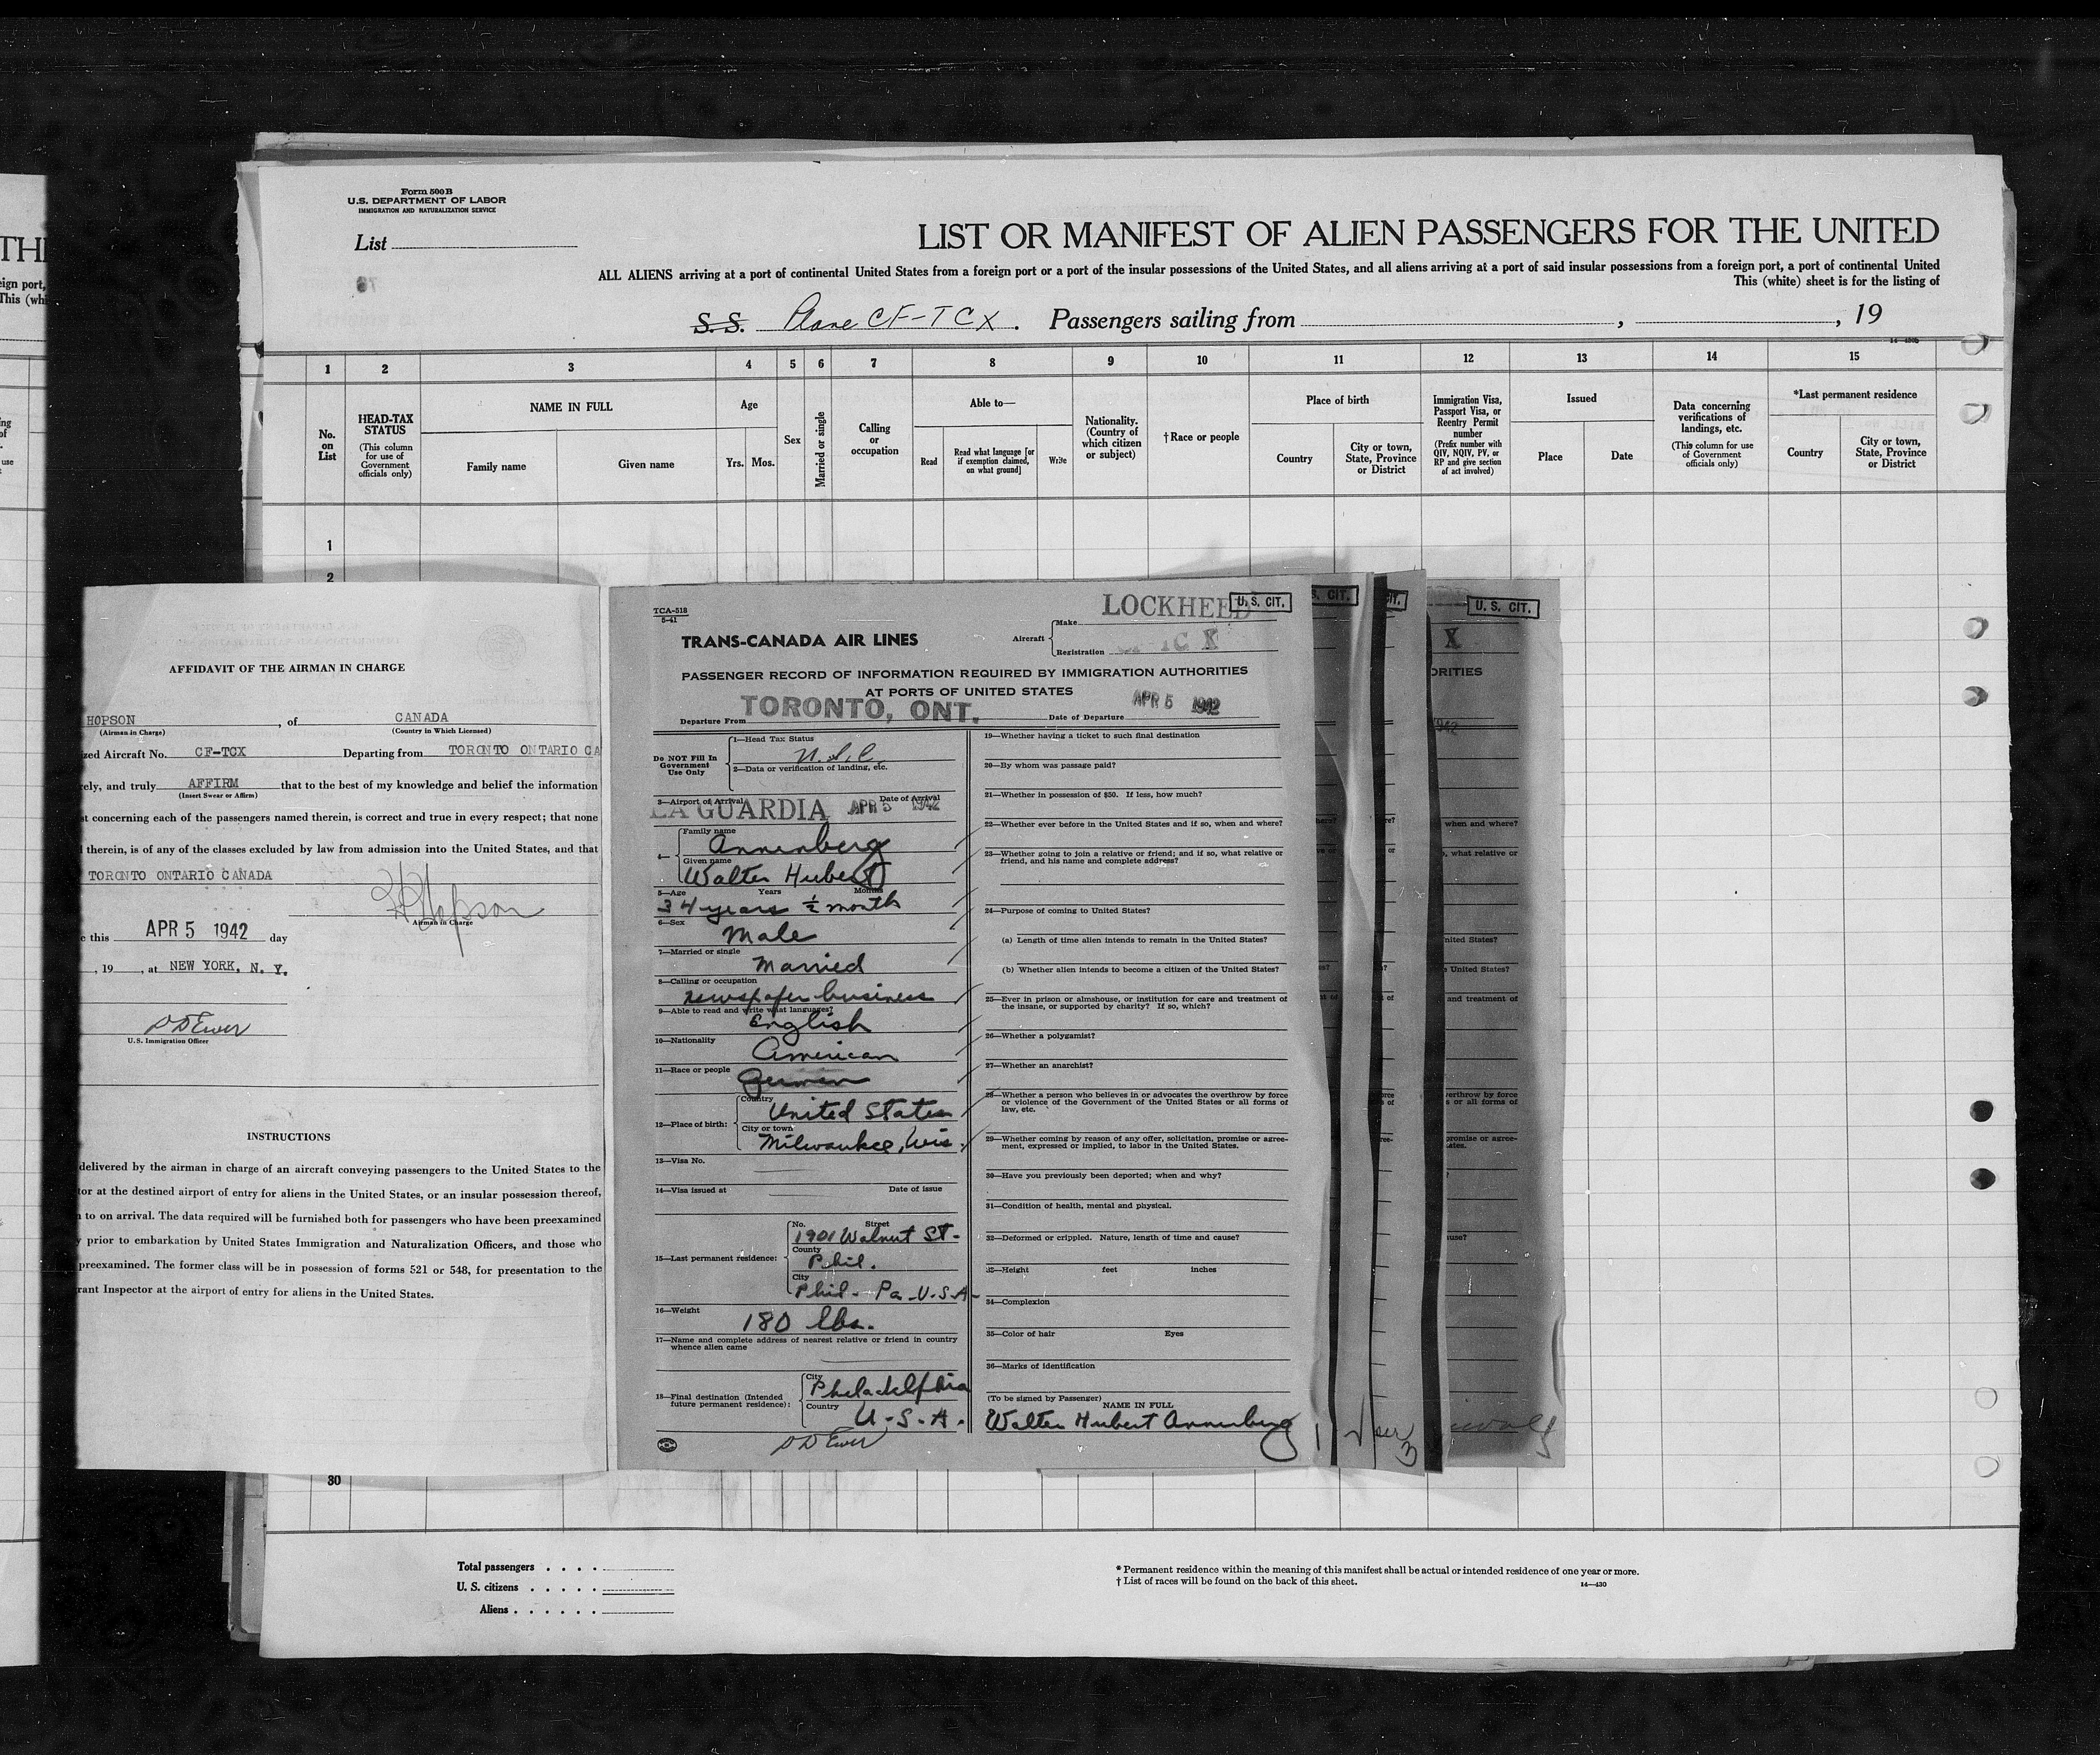 TH
eign port,
This (whi
ng
of
use
Form 500B
U.S. DEPARTMENT OF LABOR
IMMIGRATION AND NATURALIZATION SERVICE
List
LIST OR MANIFEST OF ALIEN PASSENGERS FOR THE UNITED
ALL ALIENS arriving at a port of continental United States from a foreign port or a port of the insular possessions of the United States, and all aliens arriving at a port of said insular possessions from a foreign port, a port of continental United
This (white) sheet is for the listing of
S.S. Plane CF-TCX. Passengers sailing from , , 19
1 2 3 4 5 6 7 8 9 10 11 12 13 14 15
No. on List
HEAD-TAX STATUS
(This column for use of Government officials only)
NAME IN FULL
Family name Given name
Age
Yrs. Mos.
Sex
Married or single
Calling or occupation
Able to—
Read
Read what language [or if exemption claimed, on what ground]
Write
Nationality. (Country of which citizen or subject)
†Race or people
Place of birth
Country
City or town, State, Province or District
Immigration Visa, Passport Visa, or Reentry Permit number
(Prefix number with QIV, NQIV, PV, or RP and give section of act involved)
Issued
Place Date
Data concerning verifications of landings, etc.
(This column for use of Government officials only)
*Last permanent residence
Country
City or town, State, Province or District
1
2
AFFIDAVIT OF THE AIRMAN IN CHARGE
HOPSON , of CANADA
(Airman in Charge) (Country in Which Licensed)
zed Aircraft No. CF-TCX Departing from TORONTO ONTARIO CA
ely, and truly AFFIRM that to the best of my knowledge and belief the information
(Insert Swear or Affirm)
st concerning each of the passengers named therein, is correct and true in every respect; that none
therein, is of any of the classes excluded by law from admission into the United States, and that
TORONTO ONTARIO CANADA
Hopson
Airman in Charge
e this APR 5 1942 day
, 19 , at NEW YORK, N. Y.
D D Ewer
U.S. Immigration Officer
INSTRUCTIONS
delivered by the airman in charge of an aircraft conveying passengers to the United States to the
tor at the destined airport of entry for aliens in the United States, or an insular possession thereof,
to on arrival. The data required will be furnished both for passengers who have been preexamined
y prior to embarkation by United States Immigration and Naturalization Officers, and those who
preexamined. The former class will be in possession of forms 521 or 548, for presentation to the
rant Inspector at the airport of entry for aliens in the United States.
TCA-518
5-41
TRANS-CANADA AIR LINES
Aircraft
Make LOCKHEED
U. S. CIT.
Registration TC X
PASSENGER RECORD OF INFORMATION REQUIRED BY IMMIGRATION AUTHORITIES
AT PORTS OF UNITED STATES
Departure From TORONTO, ONT. Date of Departure APR 5 1942
Do NOT Fill In Government Use Only
1—Head Tax Status
U.S.C.
2—Data or verification of landing, etc.
3—Airport of Arrival Date of Arrival
LA GUARDIA APR 5 1942
4—
Family name
Annenberg
Given name
Walter Hubert
5—Age Years Months
34 years ½ month
6—Sex
Male
7—Married or single
Married
8—Calling or occupation
newspaper business
9—Able to read and write what languages?
English
10—Nationality
American
11—Race or people
German
12—Place of birth:
Country
United States
City or town
Milwaukee, Wis.
13—Visa No.
14—Visa issued at Date of issue
15—Last permanent residence:
No. Street
1901 Walnut St-
County
Phil.
City
Phil- Pa-U-S-A-
16—Weight
180 lbs.
17—Name and complete address of nearest relative or friend in country
whence alien came
18—Final destination (Intended
future permanent residence):
City
Philadelphia
Country
U-S-A.
D D Ewer
19—Whether having a ticket to such final destination
20—By whom was passage paid?
21—Whether in possession of $50. If less, how much?
22—Whether ever before in the United States and if so, when and where?
23—Whether going to join a relative or friend; and if so, what relative or
friend, and his name and complete address?
24—Purpose of coming to United States?
(a) Length of time alien intends to remain in the United States?
(b) Whether alien intends to become a citizen of the United States?
25—Ever in prison or almshouse, or institution for care and treatment of
the insane, or supported by charity? If so, which?
26—Whether a polygamist?
27—Whether an anarchist?
28—Whether a person who believes in or advocates the overthrow by force
or violence of the Government of the United States or all forms of
law, etc.
29—Whether coming by reason of any offer, solicitation, promise or agree-
ment, expressed or implied, to labor in the United States.
30—Have you previously been deported; when and why?
31—Condition of health, mental and physical.
32—Deformed or crippled. Nature, length of time and cause?
33—Height feet inches
34—Complexion
35—Color of hair Eyes
36—Marks of identification
(To be signed by Passenger)
NAME IN FULL
Walter Hubert Annenberg
S. CIT.
CIT.
U. S. CIT.
X
ORITIES
1942
when and where?
, what relative or
nited States?
United States?
and treatment of
verthrow by force
s or all forms of
promise or agree-
ates.
use?
3
30
Total passengers . . . .
U. S. citizens . . . . .
Aliens . . . . . .
* Permanent residence within the meaning of this manifest shall be actual or intended residence of one year or more.
† List of races will be found on the back of this sheet.
14—430